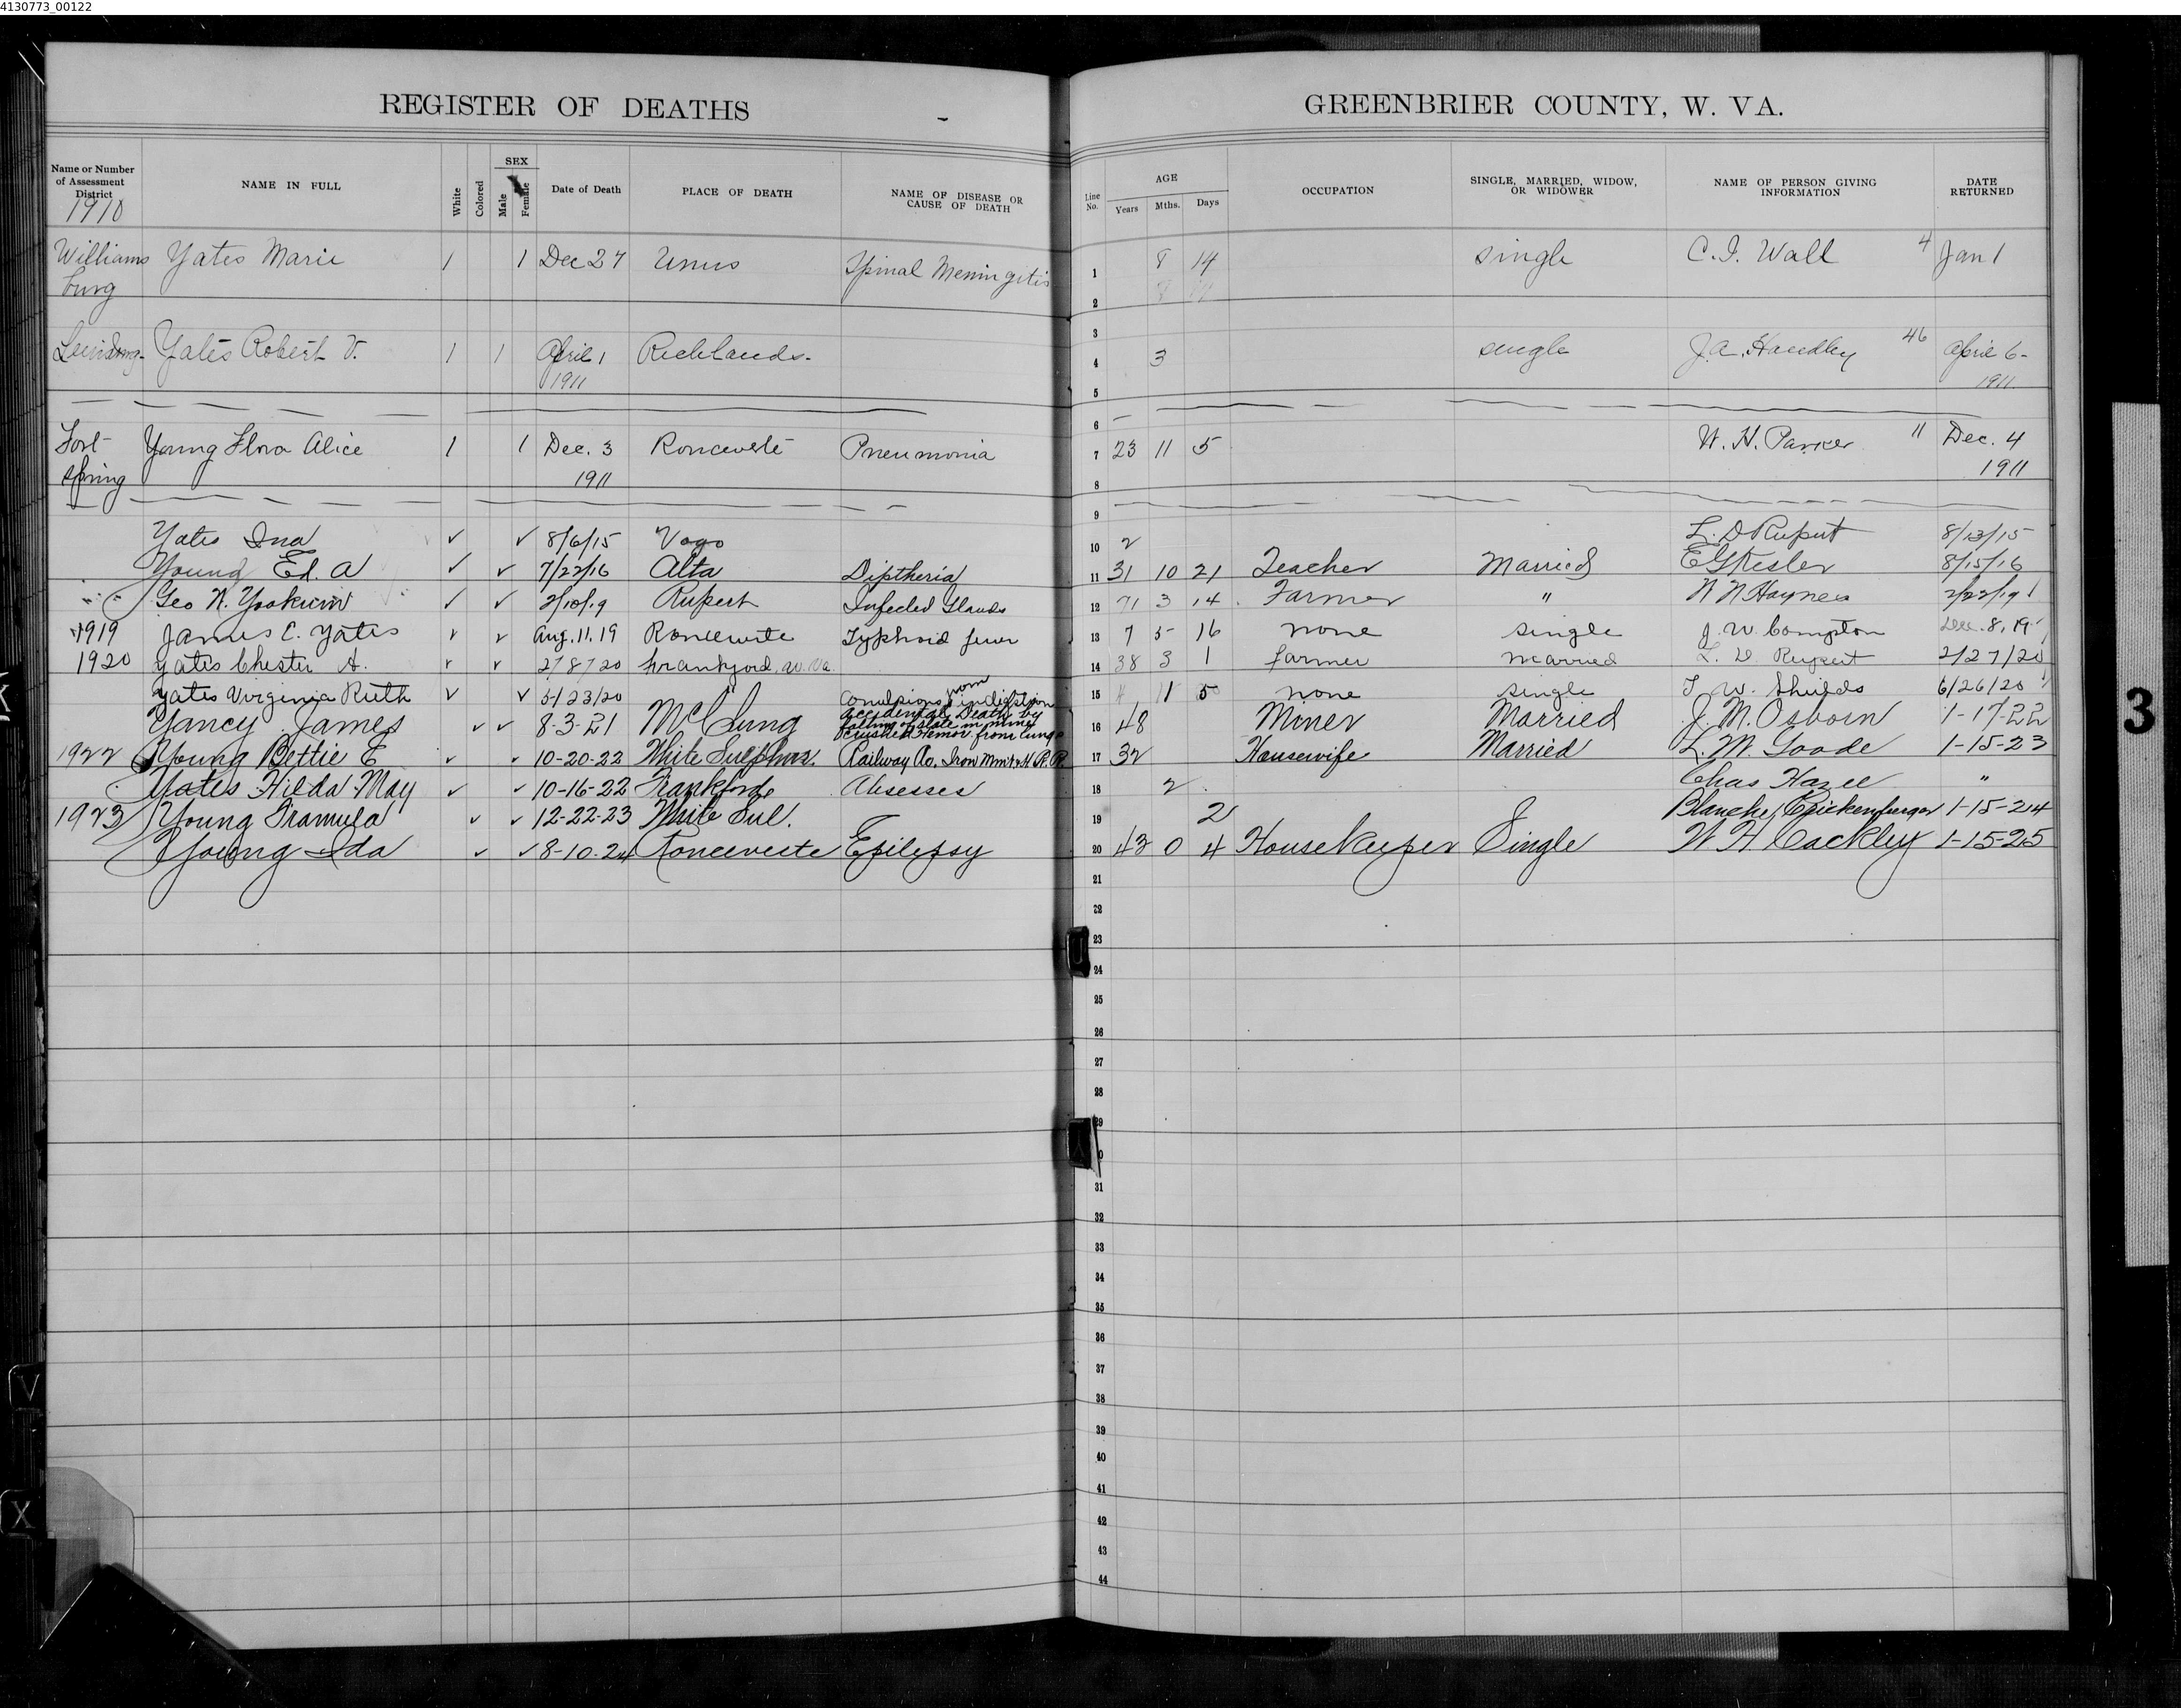 4130773_00122
REGISTER OF DEATHS
GREENBRIER COUNTY, W. VA.
Name or Number of Assessment District
1910
NAME IN FULL
White
Colored
SEX
Male
Female
Date of Death
PLACE OF DEATH
NAME OF DISEASE OR CAUSE OF DEATH
Line No.
AGE
Years
Mths.
Days
OCCUPATION
SINGLE, MARRIED, WIDOW, OR WIDOWER
NAME OF PERSON GIVING INFORMATION
DATE RETURNED
Williamsburg Yates Marie 1 1 Dec 27 Unus Spinal Meningitis 1 8 14 single C. I. Wall 4 Jan 1
2
3
Yates Robert V. 1 1 April 1 1911 Richlands. 4 3 single J. A. Handley 46 April 6- 1911
5
6
Fort Spring Young Flora Alice 1 1 Dec. 3 1911 Ronceverte Pneumonia 7 23 11 5 W. H. Parker 11 Dec. 4 1911
8
9
Yates Ina ✓ ✓ 8/6/15 Vago 10 2 L. D Rupert 8/13/15
Young Ed. A ✓ ✓ 7/22/16 Alta Diptheria 11 31 10 21 Teacher Married 8/15/16
Geo N. Yoakum ✓ ✓ 2/10/19 Rupert Infected Glands 12 71 3 14 Farmer " N N Haynes 2/22/19
1919 James C. Yates ✓ ✓ Aug. 11. 19 Ronceverte Typhoid fever 13 7 5 16 none single J. W. Compton Dec. 8, 19
1920 Yates Chester A. ✓ ✓ 2/8/20 Frankford, W. Va. 14 38 3 1 farmer married L. D. Rupert 2/27/20
Yates Virginia Ruth ✓ ✓ 5/23/20 " Conulsions from indigestion 15 11 5 none single T. W. Shields 6/26/20
Yancy James ✓ ✓ 8-3-21 McClung Accidental Death by falling of slate in mines crushed Hemor. from lungs 16 48 Miner Married J. M. Osborn 1-17-22
1922 Young Bettie E ✓ ✓ 10-20-22 White Sulphur. Railway 17 32 Housewife Married L. M. Goode 1-15-23
Yates Hilda May ✓ ✓ 10-16-22 Frankford Absesses 18 2 Chas "
1923 Young ✓ ✓ 12-22-23 White Sul. 19 2 Blanche 1-15-24
Young Ida ✓ ✓ 8-10-24 Ronceverte Epilepsy 20 43 0 4 HouseKeeper Single W H Cackley 1-15-25
21
22
23
24
25
26
27
28
29
31
32
33
34
35
36
37
38
39
40
41
42
43
44
3
V
X